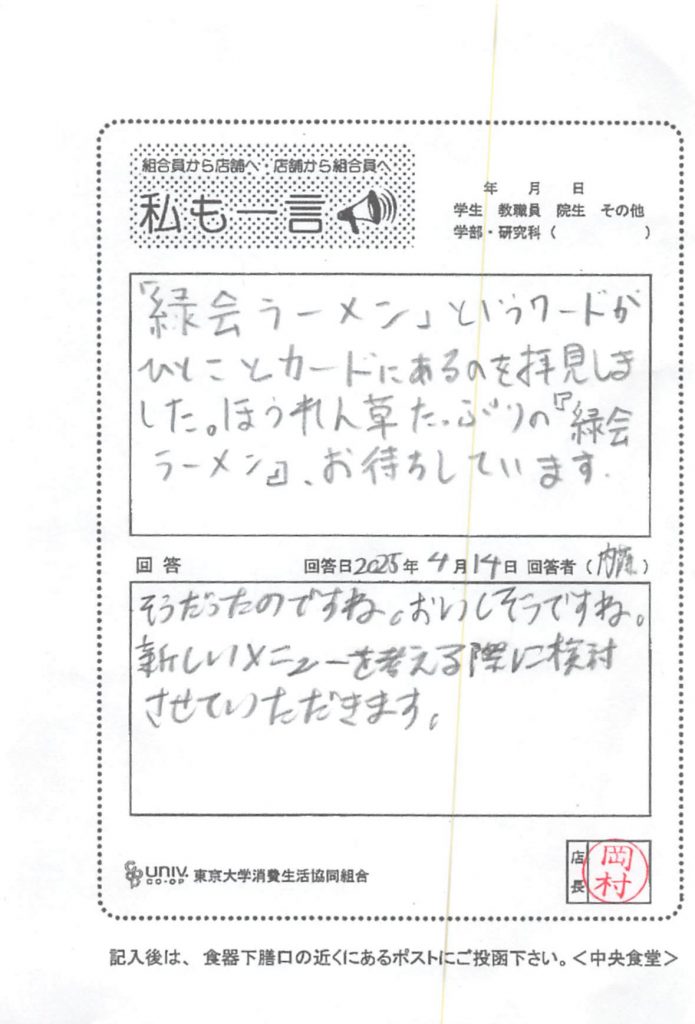 組合員から店舗へ・店舗から組合員へ
私も一言
年 月 日
学生 教職員 院生 その他
学部・研究科（ ）
『緑会ラーメン」というワードが
ひとことカードにあるのを拝見しま
した。ほうれん草たっぷりの『緑会
ラーメン』、お待ちしています.
回答 回答日2025年4月14日 回答者（内藤）
そうだったのですね。おいしそうですね。
新しいメニューを考える際に検討
させていただきます。
UNIV. CO-OP 東京大学消費生活協同組合
店長 岡村
記入後は、食器下膳口の近くにあるポストにご投函下さい。＜中央食堂＞